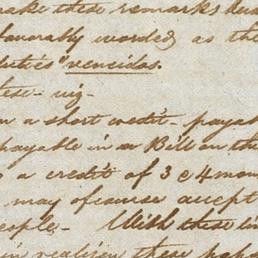 make these remarks but
favorably worded as the
"vencidas.
these - viz -
on a short credit - payab
payable in a Bill on th
o a credit of 3 @ 4 mon
may of course accept
eople - With these lin
in realising these pape